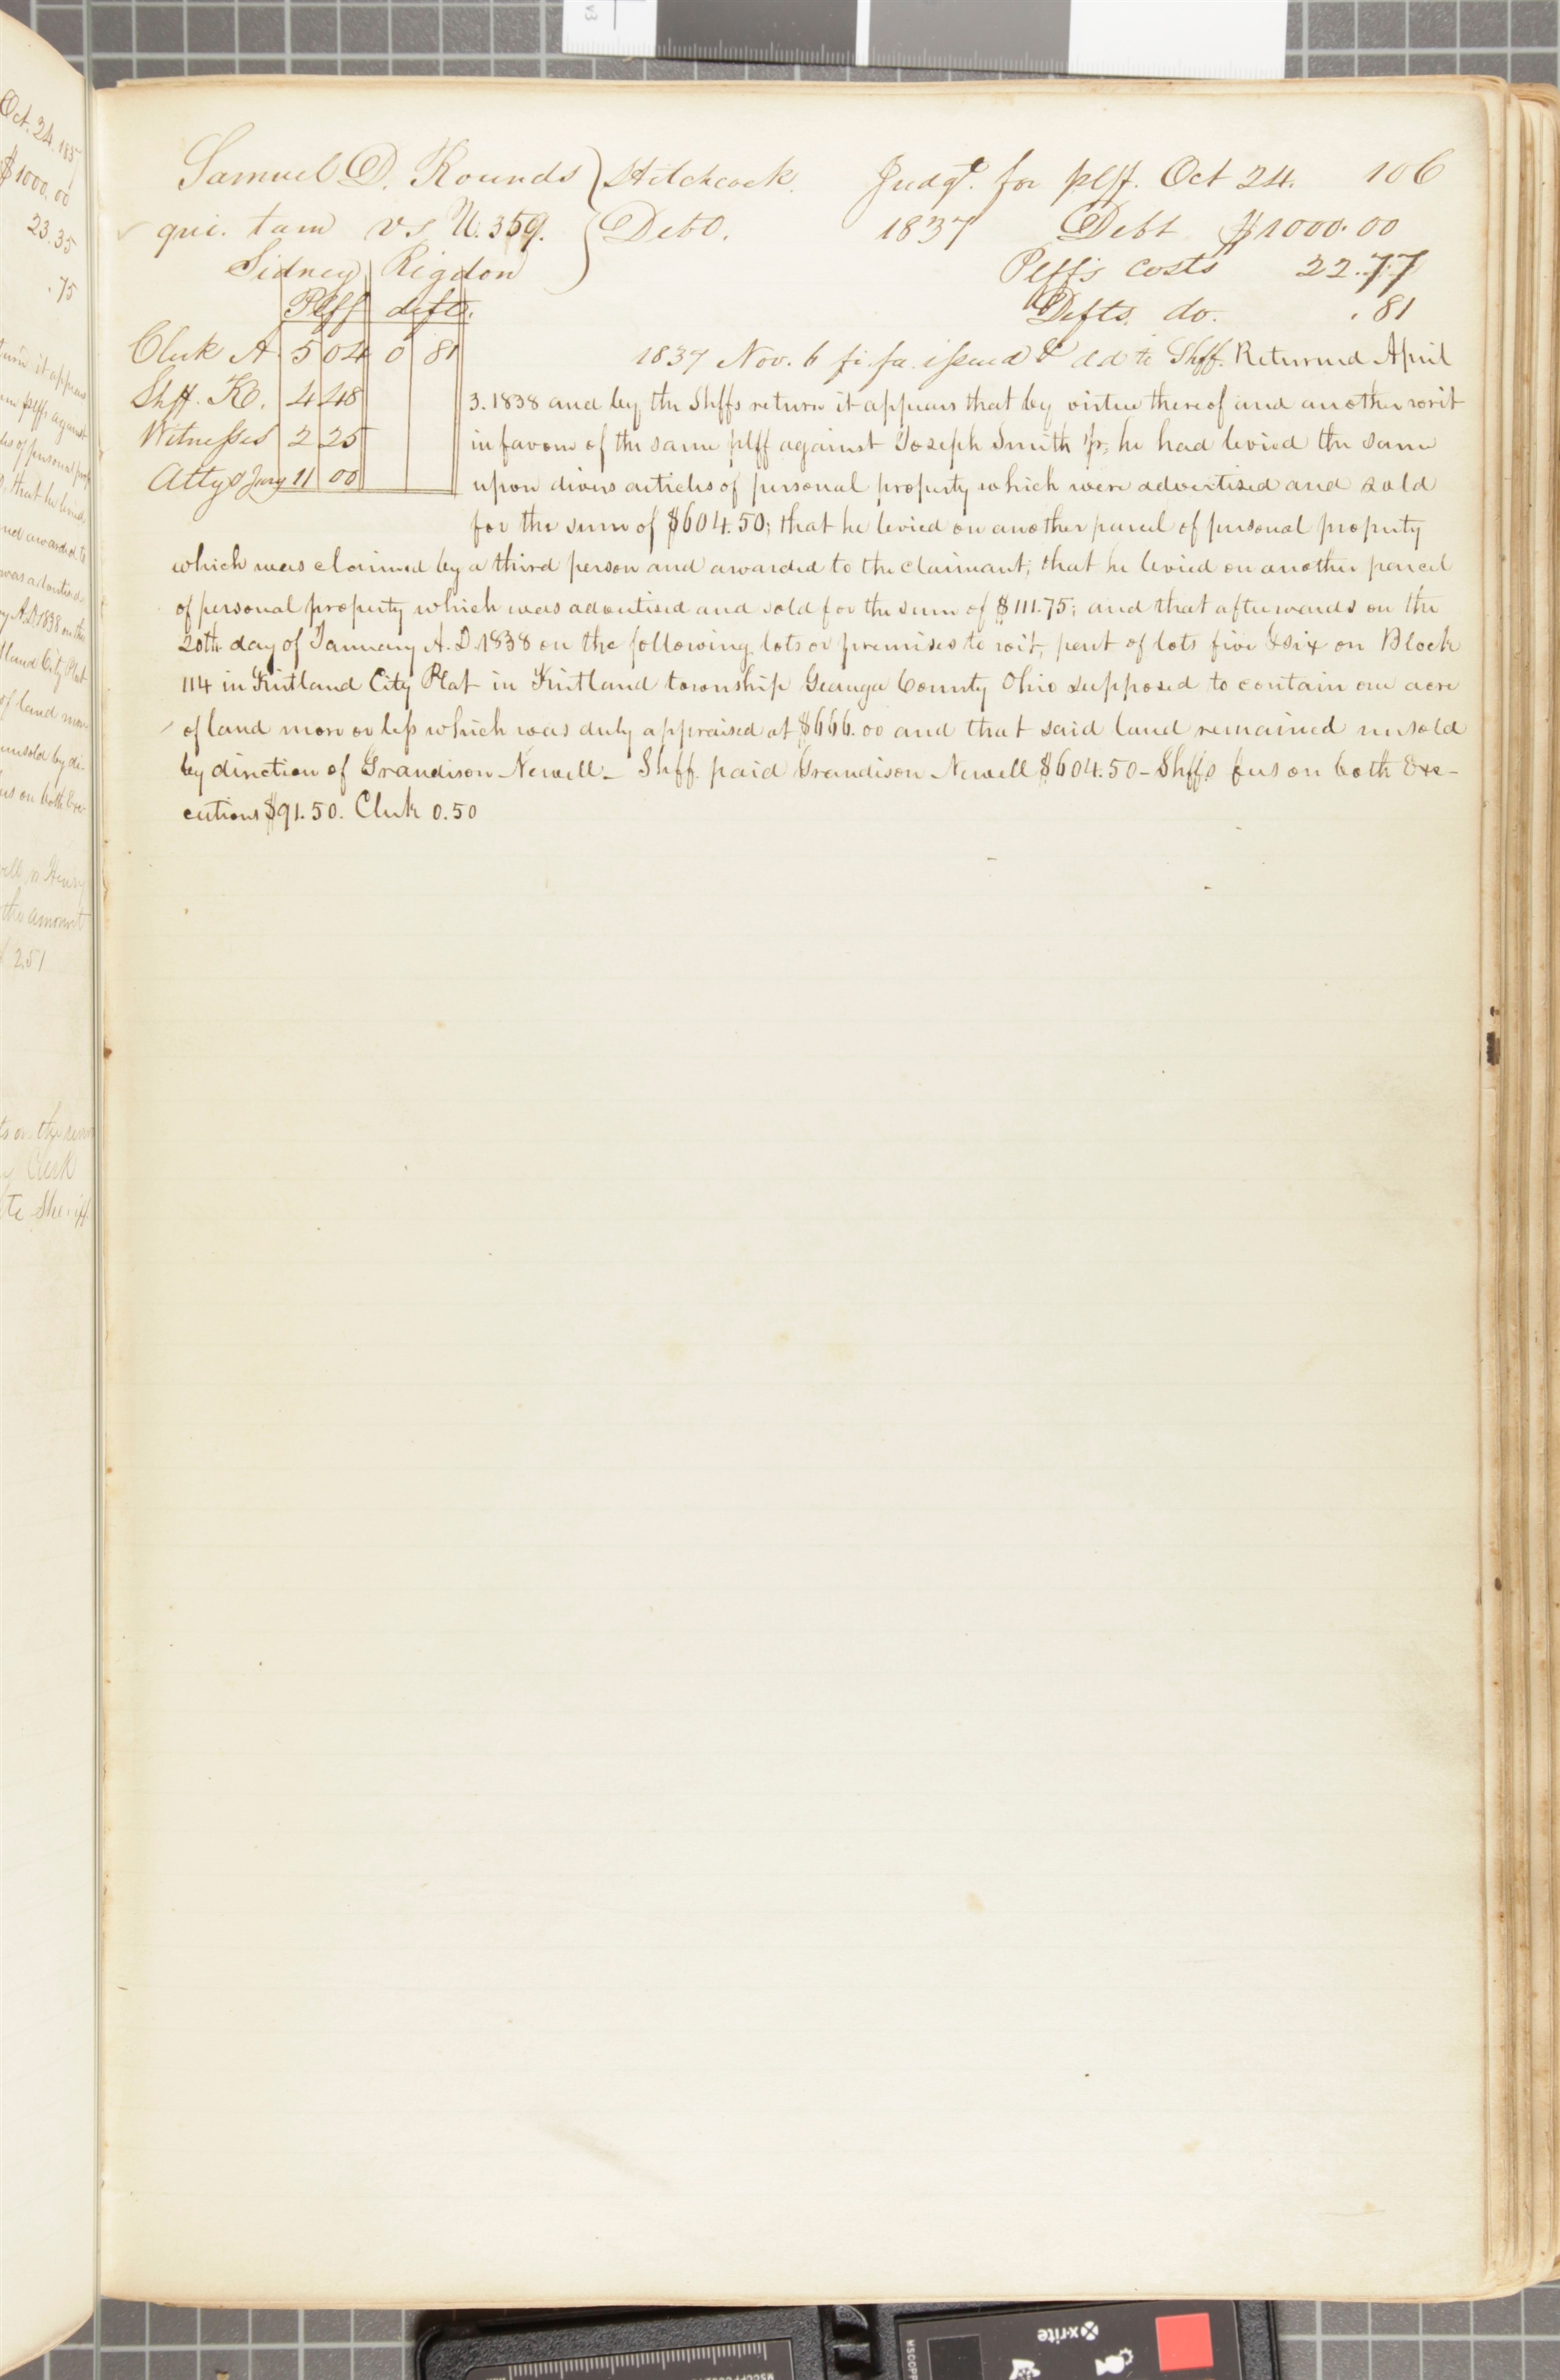 Oct. 24. 183
$1000.00
23.35
.75
plff against
that he levied
and awarded to
was advertised
y A.D. 1838 on the
tland City Plat
of land mor
unsold by di-
es on both Exe-
the amount
251
Clerk
te Sheriff
Samuel D. Rounds Hitchcock. Judgt. for plff. Oct 24. 106
qui. tam vs U. 359. Debt. 1837 Debt $1000.00
Sidney Rigdon Plffs costs 22.77
Plff deft. Defts. do. .81
Clerk A 5 04 0 81 1837 Nov. 6 fi. fa. issued & dd to Shff. Returned April
Shff. K. 4 48 3. 1838 and by the Shffs return it appears that by virtue thereof and another writ
Witnesses 2 25 in favour of the same plff against Joseph Smith Jr; he had levied the same
Atty & Jury 11 00 upon divers articles of personal property which were advertised and sold
for the sum of $604.50; that he levied on another parcel of personal property
which was claimed by a third person and awarded to the claimant; that he levied on another parcel
of personal property which was advertised and sold for the sum of $111.75; and that afterwards on the
20th day of January A.D. 1838 on the following lots or premises to wit, part of lots five & six on Block
114 in Kirtland City Plat in Kirtland township Geauga County Ohio supposed to contain one acre
of land more or less which was duly appraised at $666.00 and that said land remained unsold
by direction of Grandison Newell - Shff paid Grandison Newell $604.50 - Shffs fees on both Exe-
cutions $91.50. Clerk 0.50
x-rite